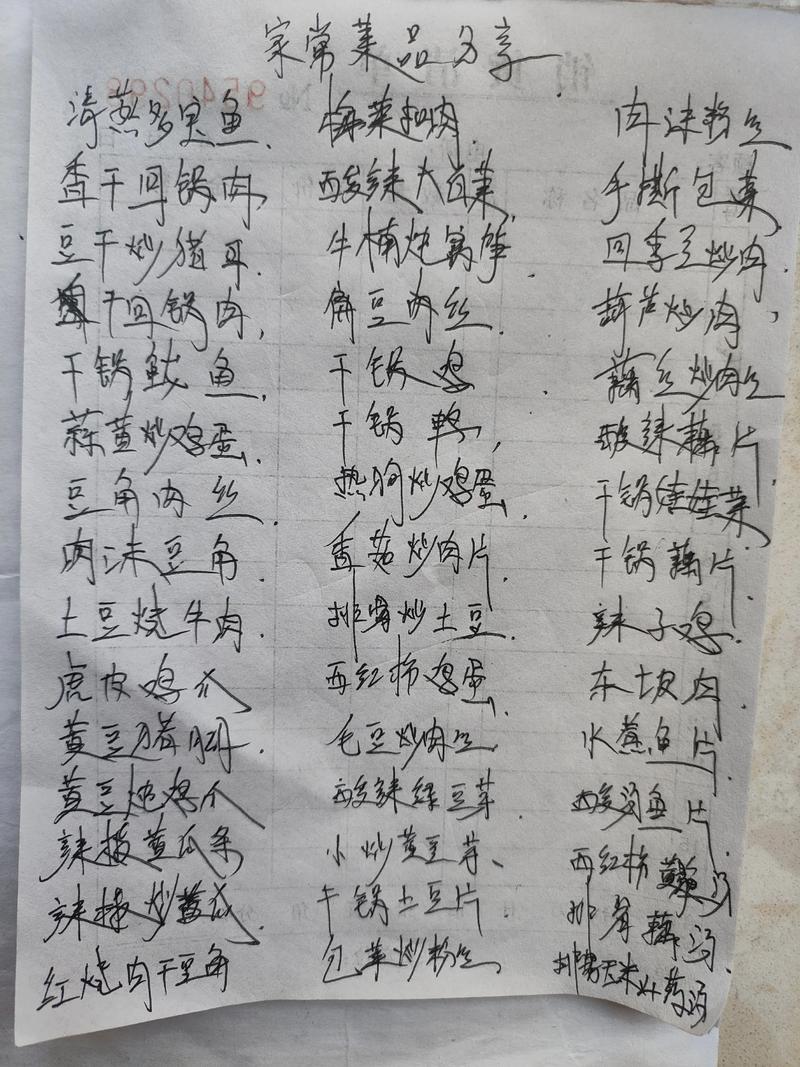 家常菜品分享
清蒸多宝鱼
香干回锅肉
豆干炒猪耳
干回锅肉
干锅鱿鱼
蒜黄炒鸡蛋
豆角肉丝
肉沫豆角
土豆烧牛肉
虎皮鸡爪
黄豆猪脚
黄豆炖鸡爪
辣椒黄瓜条
辣椒炒黄瓜
红烧肉干豆角
梅菜扣肉
酸辣大白菜
牛楠炖窝笋
角豆肉丝
干锅鸡
干锅鸭
热狗炒鸡蛋
香菇炒肉片
排骨炒土豆
西红柿鸡蛋
毛豆炒肉丝
酸辣绿豆芽
小炒黄豆芽
干锅土豆片
包菜炒粉丝
肉沫粉丝
手撕包菜
四季豆炒肉
葫芦炒肉
藕丝炒肉丝
酸辣藕片
干锅娃娃菜
干锅藕片
辣子鸡
东坡肉
水煮鱼片
酸汤鱼片
西红柿蛋汤
排骨藕汤
排骨玉米山药汤